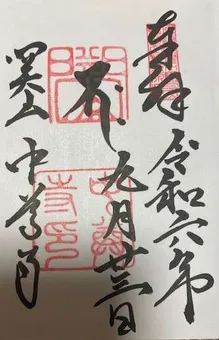 奉拝 令和六年
九月廿三日
関山 中尊寺